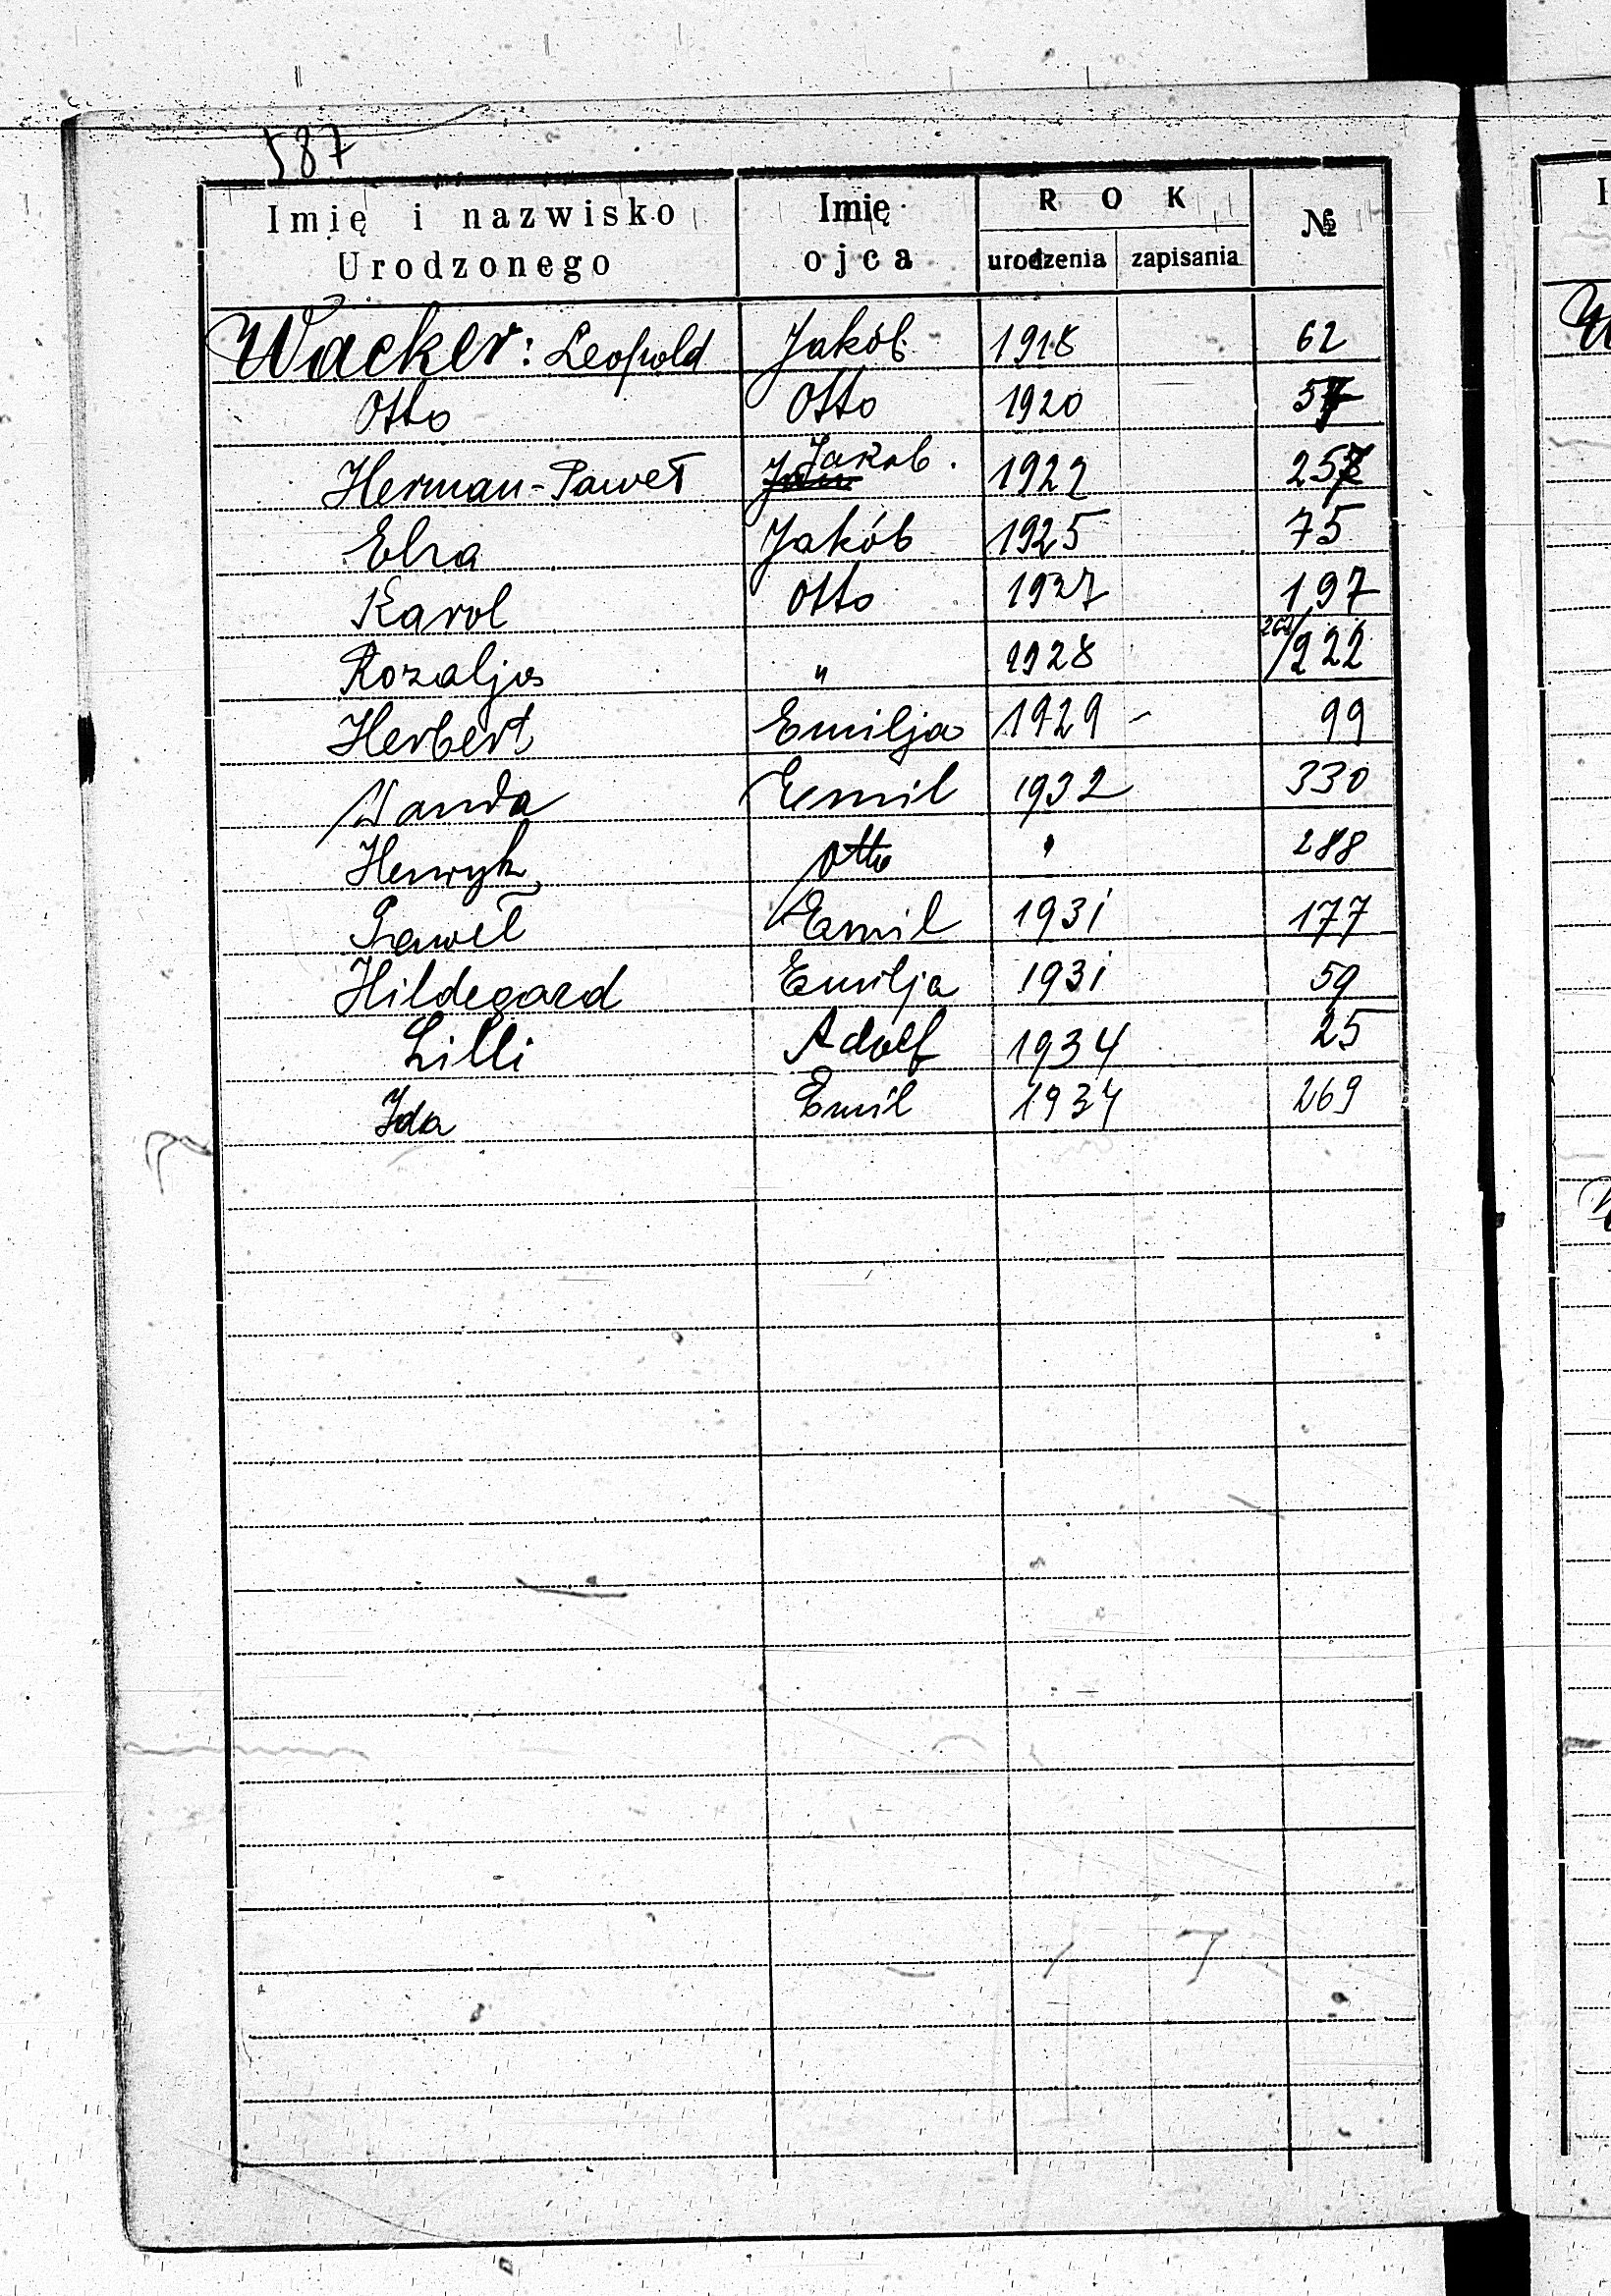 587
Imię i nazwisko Urodzonego | Imię ojca | ROK urodzenia | zapisania | №
Wacker: Leopold Jakób 1918 62
Otto Otto 1920
Herman-Paweł Jakob. 1922
Elza Jakób 1925 75
Karol Otto 1927 197
Rozalja " 1928 222
Herbert Emilja 1929 - 99
Wanda Emil 1932 330
Henryk Otto " 288
Paweł Emil 1931 177
Hildegard Emilja 1931 59
Lilli Adolf 1934 25
Ida Emil 1934 269